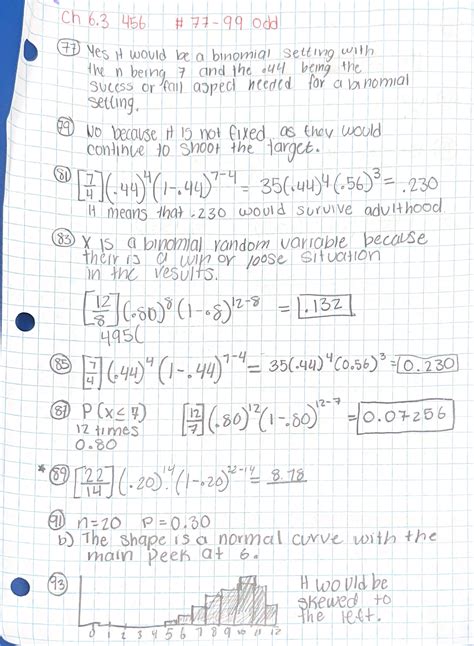 Ch 6.3 456 # 77-99 odd
77 Yes it would be a binomial setting with
the n being 7 and the .44 being the
sucess or fail aspect needed for a binomial
setting.
79 No because it is not fixed, as they would
continue to shoot the target.
81 [7/4](.44)^4(1-.44)^7-4 = 35(.44)^4(.56)^3 = .230
It means that .230 would survive adulthood
83 X is a binomial random variable because
their is a win or loose situation
in the results.
[12/8](.80)^8(1-.8)^12-8 = .132
495(
85 [7/4](.44)^4(1-.44)^7-4 = 35(.44)^4(0.56)^3 = 0.230
87 P(x≤7) [12/7](.80)^12(1-.80)^12-7 = 0.07256
12 times
0.80
* 89 [22/14](.20)^14.(1-.20)^22-14 = 8.78
91 n=20 P=0.30
b) The shape is a normal curve with the
main peek at 6.
93 It would be
skewed to
the left.
0 1 2 3 4 5 6 7 8 9 10 11 12